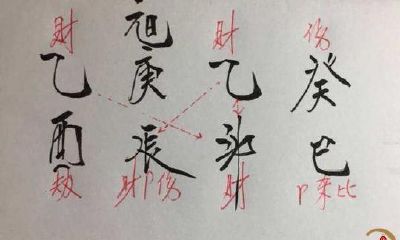 财 财 伤
乙 庚 乙 癸
酉 辰 卯 巳
劫 财P伤 财 P杀比